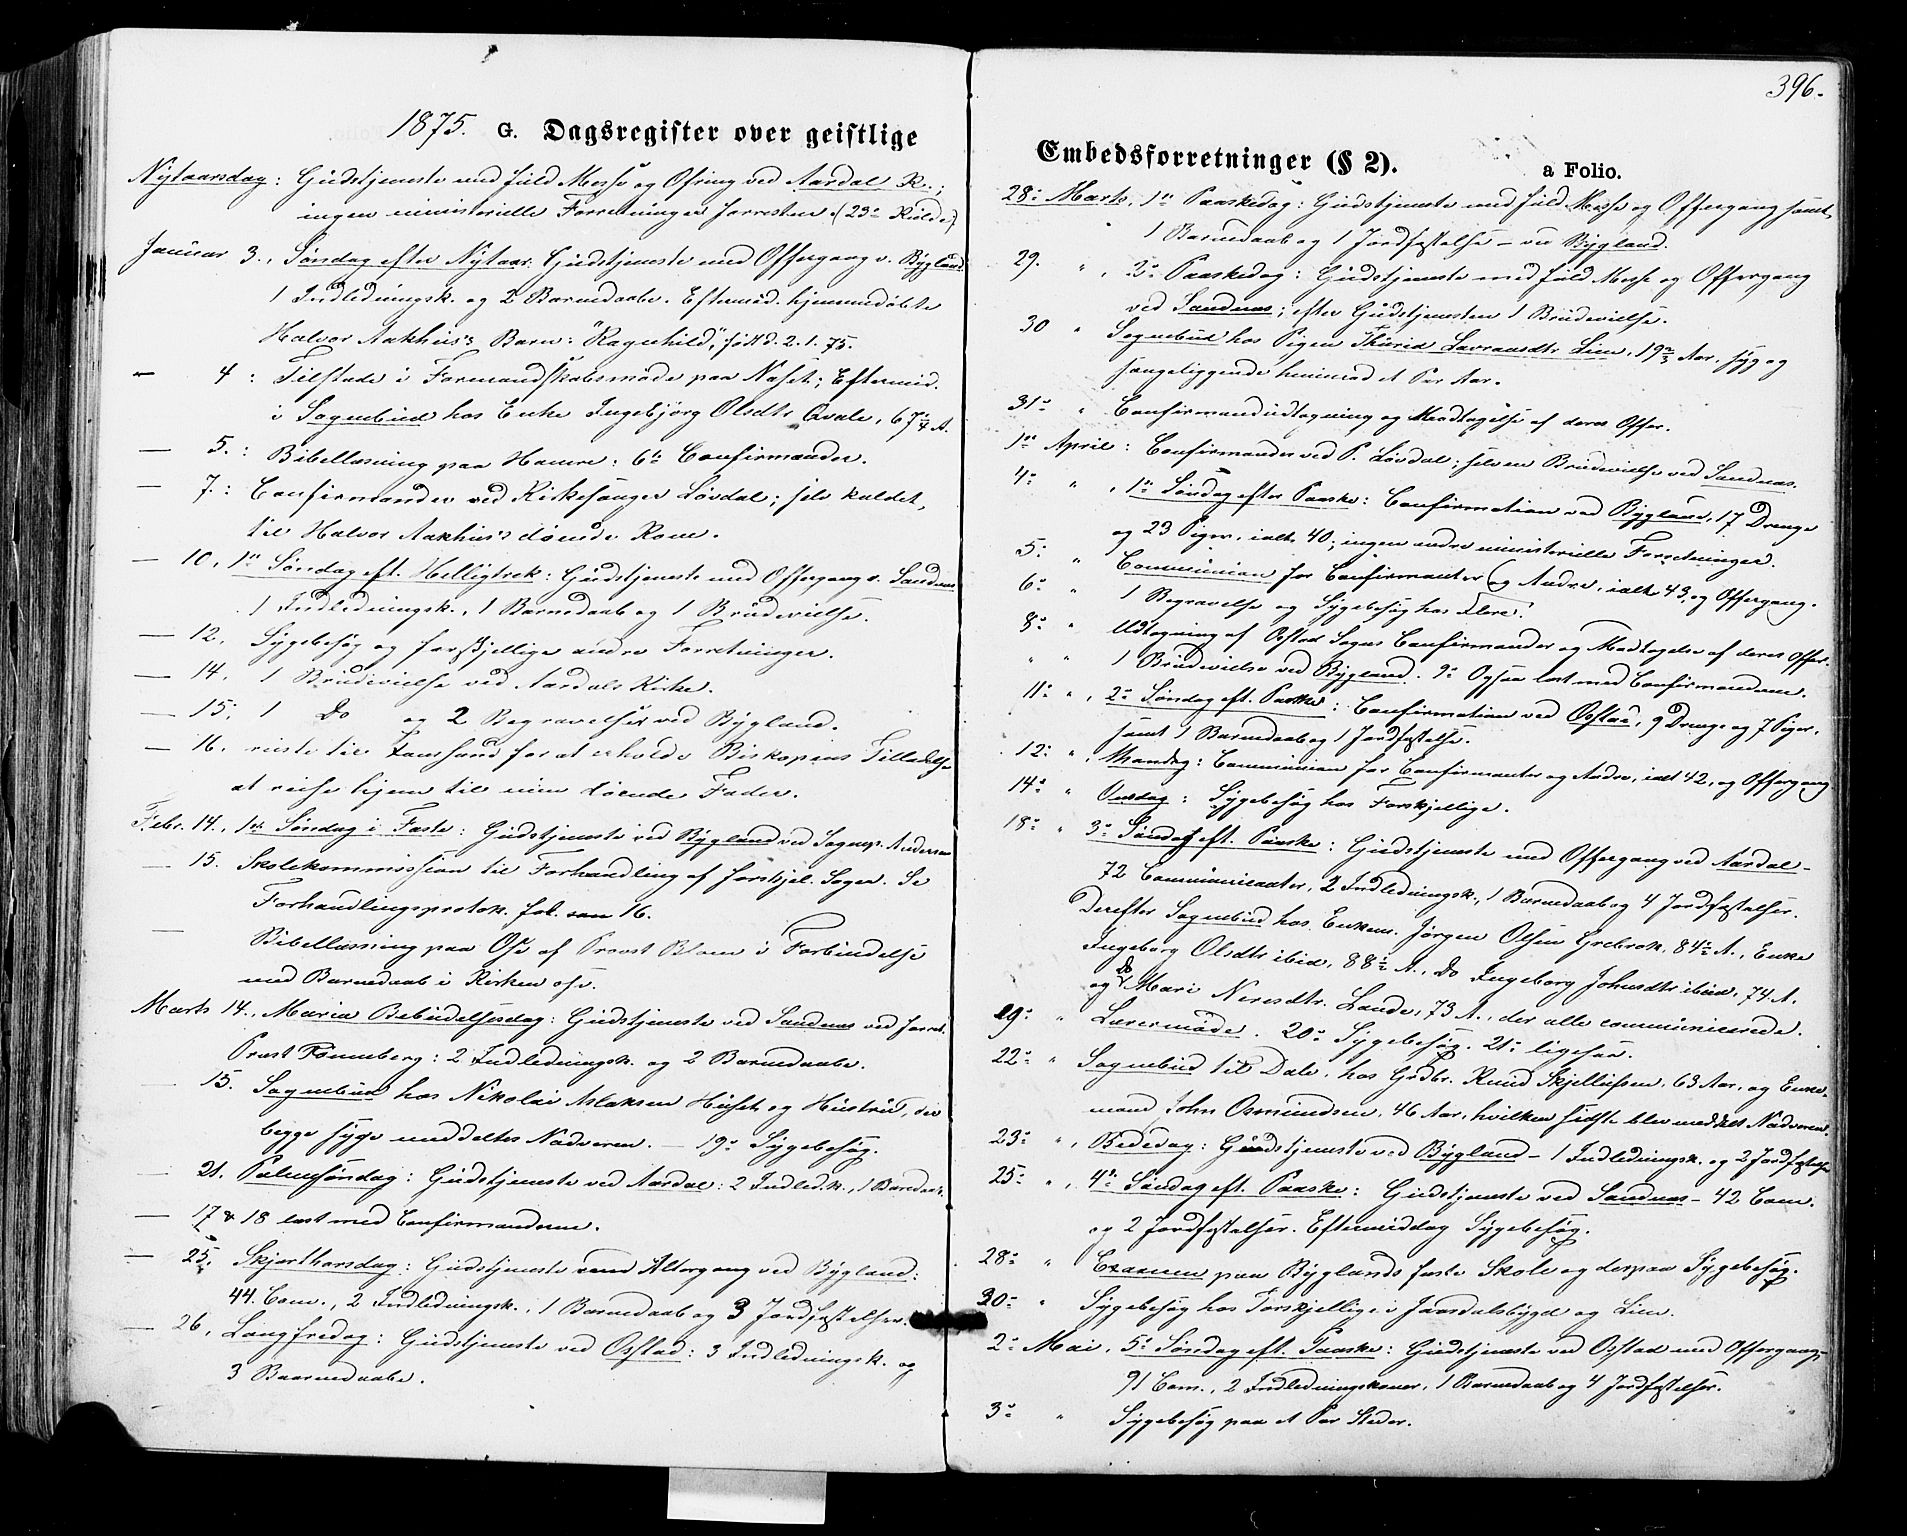 1875. G. Dagsregister over geistlige
Nytaarsdag: Gudstjeneste med fuld Messe og Ofring ved Aardal K.;
ingen ministerielle Forretninger forresten. (23° Kulde)
Januar 3., Søndag efter Nytaar. Gudstjeneste med Offergang v. Bygland.
1 Indledningsk. og 2 Barnedaabe. Eftermid. hjemmedøbte
Halvor Aakhus's Barn: "Ragnhild", født d. 2. 1. 75.
— 4: Tilstede i Formandskabsmøde paa Næset; Eftermid.
i Sognebud hos Enke Ingebjørg Olsdtr Qvale, 67 A.
— 5.: Bibellæsning paa Hamre: 6te Confirmander.
— 7.: Confirmander ved Kirkesanger Løvdal; selv kaldet,
til Halvor Aakhus's døende Kone.
— 10, 1ste Søndag eft. Helligtrek: Gudstjeneste med Offergang v. Sandnæs
1 Indledningsk., 1 Barnedaab og 1 Brudevielse.
— 12. Sygebesøg og forskjellige andre Forretninger.
— 14. 1 Brudevielse ved Aardals Kirke.
— 15; 1 Do og 2 Begravelser ved Bygland.
— 16. reiste til for at erholde Biskopens Tilladelse
at reise hjem til min døende Fader.
Febr. 14., 1ste Søndag i Faste: Gudstjeneste ved Bygland ved Sognep. Andersen
— 15. Skolekommission til Forhandling af forskjel. Sager. Se
Forhandlingsprotok. fol. 16.
— Bibellæsning paa Ose af Provst Blom i Forbindelse
med Barnedaab i Kirken osv.
Marts 14., Maria Bebudelsesdag: Gudstjeneste ved Sandnæs ved forrt.
Prost Fonneberg: 2 Indledningsk. og 2 Barnedaabe.
— 15. Sognebud hos Nikolai Aslaksen Huset og Hustru, der
begge syge meddeltes Nadveren. — 19: Sygebesøg.
— 21. Palmesøndag: Gudstjeneste ved Aardal: 2 Indled.k., 1 Barnedaab.
— 17 & 18 læst med Confirmanderne.
— 25. Skjærthorsdag: Gudstjeneste med Altergang ved Bygland:
44. Com., 2 Indledningsk., 1 Barnedaab og 3 Jordfæstelser.
— 26, Langfredag: Gudstjeneste ved Osstad: 3 Indledningsk. og
3 Baarnedaabe.
396.
Embedsforretninger (§ 2). a Folio.
28: Marts, 1ste Paaskedag: Gudstjeneste med fuld Messe og Offergang samt
1 Barnedaab og 1 Jordfæstelse – ved Bygland.
29. " , 2: Paaskedag: Gudstjeneste med fuld Messe og Offergang
ved Sandnæs; efter Gudstjenesten 1 Brudevielse.
30 " Sognebud hos Pigen Thurid Lavrandsdtr Lien, 19 Aar, syg og
sengeliggende henimod et Par Aar.
31: " Confirmandudtagning og Modtagelse af deres Offer.
1ste April: Confirmander ved P. Løvdal; selv en Brudevielse ved Sandnæs.
4: " , 1ste Søndag efter Paaske: Confirmation ved Bygland, 17 Drenge
og 23 Piger, ialt 40; ingen andre ministerielle Forretninger.
5: " Communion for Confirmanter og Andre, ialt 43, og Offergang.
6: " 1 Begravelse og Sygebesøg hos Flere.
8: " Udtagning af Osstad Sogns Confirmander og Modtagelse af deres Offer.
" " 1 Brudevielse ved Bygland. 9: Ogsaa læst med Confirmanderne.
11: " , 2: Søndag eft. Paaske: Confirmation ved Osstad, 9 Drenge og 7 Piger,
samt 1 Barnedaab og 1 Jordfæstelse.
12: " , Mandag: Communion for Confirmanter og Andre, ialt 42, og Offergang
14: " Onsdag: Sygebesøg hos Forskjellige.
18: " 3: Søndag eft. Paaske: Gudstjeneste med Offergang ved Aardal –
72 Communicanter, 2 Indledningsk., 1 Barnedaab og 4 Jordfæstelser.
Derefter Sognebud hos Enkem. Jørgen Olsen Grebrok, 84 A., Enke
Ingeborg Olsdtr ibid, 88 A., Do Ingeborg Johnsdtr ibid, 74 A.
og Do Mari Neresdtr. Lande, 73 A., der alle communicerede.
19: " Lærermøde. 20: Sygebesøg. 21: ligesaa.
22: " Sognebud til Dale, hos Grdbr. Knud Skjellufsen, 63 Aar, og Enke-
mand John Osmundsen, 46 Aar, hvilken sidste blev meddelt Nadveren.
23: " , Bededag: Gudstjeneste ved Bygland – 1 Indledningsk. og 2 Jordfæstelser
25: " , 4de Søndag eft. Paaske: Gudstjeneste ved Sandnæs – 42 Com.
og 2 Jordfæstelser. Eftermiddag Sygebesøg.
28: " Examen paa Byglands faste Skole og derpaa Sygebesøg.
30: " Sygebesøg hos Forskjellige i Jaardalsbygd og Lien.
2: Mai, 5: Søndag eft. Paaske: Gudstjeneste ved Osstad med Offergang,
91 Com., 2 Indledningskoner, 1 Barnedaab og 4 Jordfæstelser.
3: " Sygebesøg paa et Par Steder.